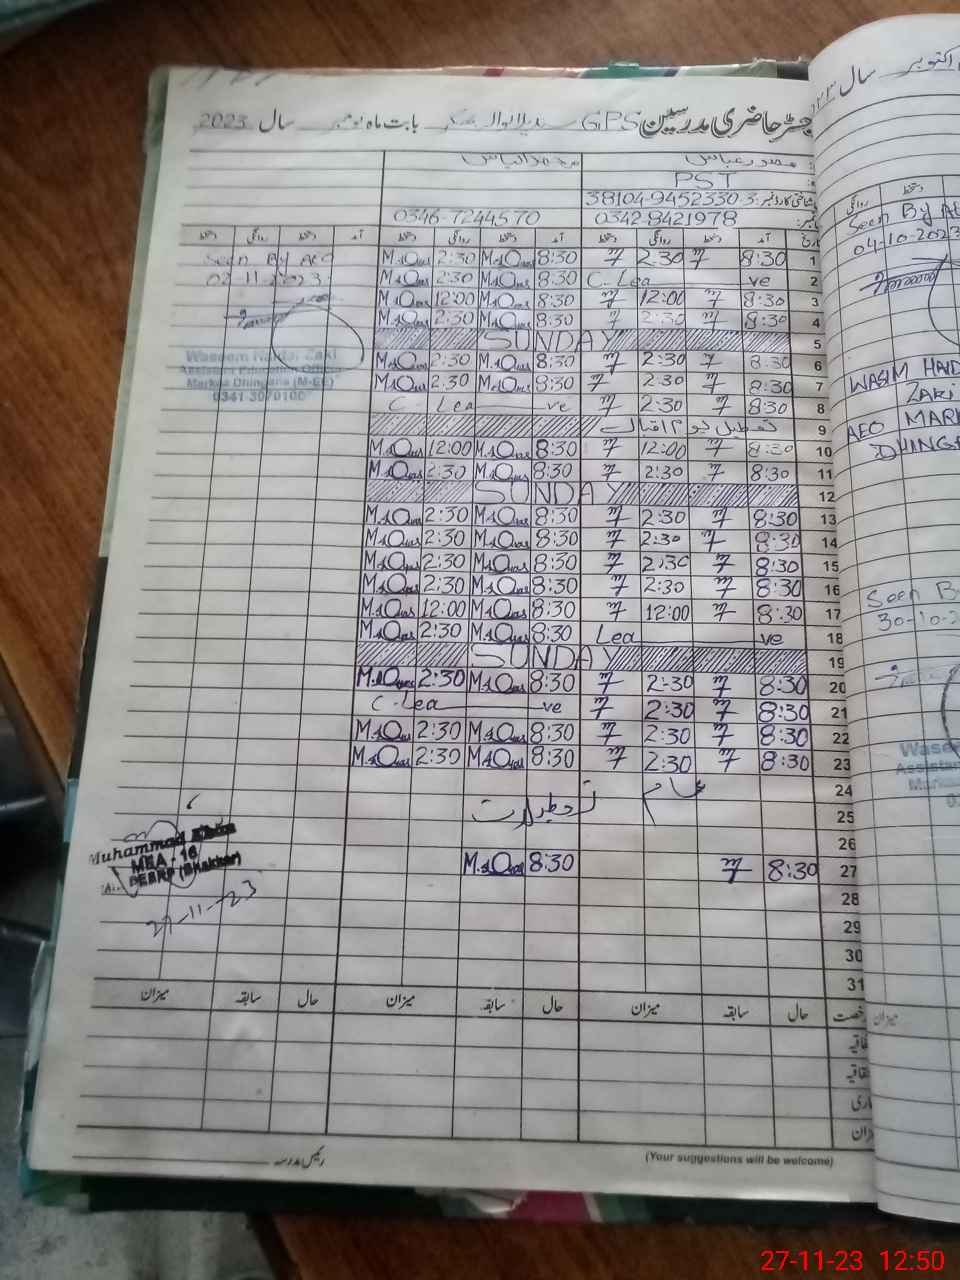 رجسٹر حاضری مدرسین GPS بابت ماہ نومبر سال 2023
منصور عباس محمد الیاس
PST
38104-9452330-3
0342-8421978 0346-7244570
تاریخ آمد دستخط روانگی دستخط آمد دستخط روانگی دستخط آمد دستخط روانگی دستخط
1 8:30 2:30 8:30 2:30 Seen By AEO
2 C-Lea ve 8:30 2:30 02-11-2023
3 8:30 12:00 8:30 12:00
4 8:30 2:30 8:30 2:30
5 SUNDAY
6 8:30 2:30 8:30 2:30
7 8:30 2:30 8:30 2:30
8 8:30 2:30 C Lea ve
9 تعطیل یوم اقبال
10 8:30 12:00 8:30 12:00
11 8:30 2:30 8:30 2:30
12 SUNDAY
13 8:30 2:30 8:30 2:30
14 8:30 2:30 8:30 2:30
15 8:30 2:30 8:30 2:30
16 8:30 2:30 8:30 2:30
17 8:30 12:00 8:30 12:00
18 Lea ve 8:30 2:30
19 SUNDAY
20 8:30 2:30 8:30 2:30
21 8:30 2:30 C-Lea ve
22 8:30 2:30 8:30 2:30
23 8:30 2:30 8:30 2:30
24
25 عام تعطیلات
26
27 8:30 8:30
28
29
30
31
Assistant Education Officer
Markaz Dhingana (M-EE)
0341-3070100
Muhammad
MEA - 16
(Bhakkar)
27-11-23
رخصت حال سابقہ میزان حال سابقہ میزان حال سابقہ میزان
رئیس مدرسہ
(Your suggestions will be welcome)
اکتوبر سال
دستخط روانگی
Seen By AE
04-10-2023
WASIM HAID
ZAKI
AEO MARK
DHINGA
Seen B
30-10-2
Wasee
Assistan
Marka
میزان
27-11-23 12:50